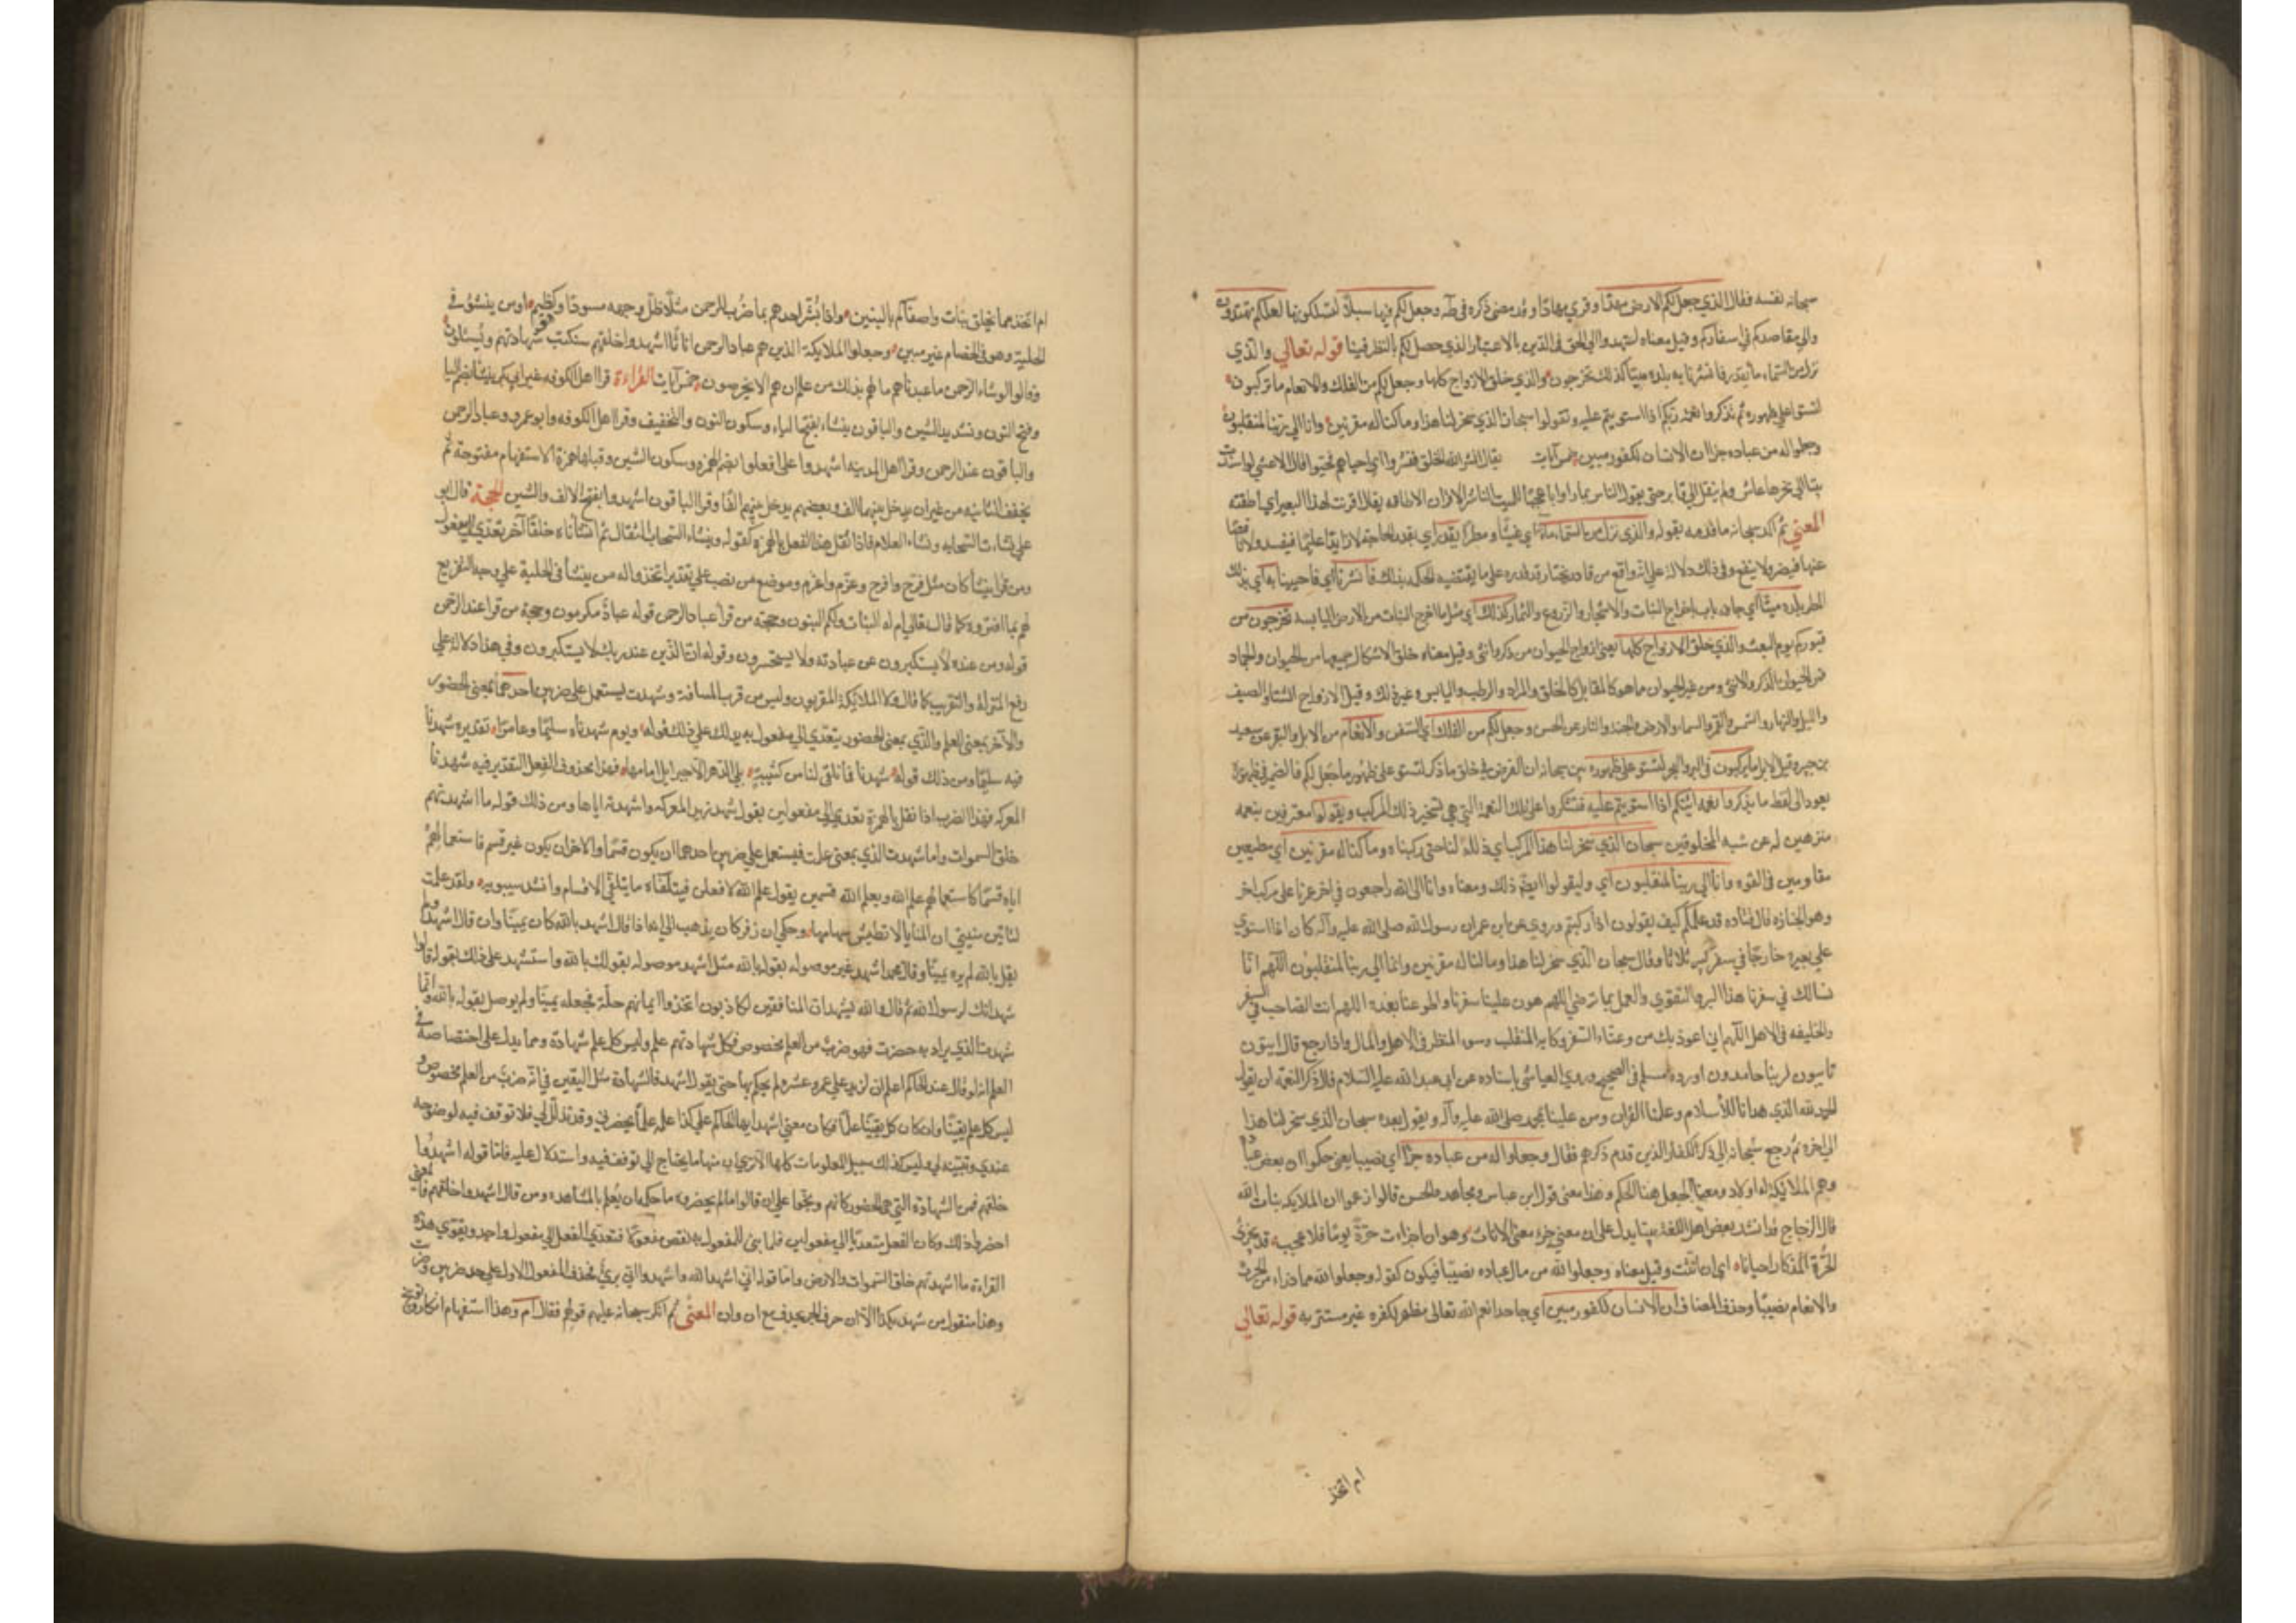 سبحانه نفسه فقال الذي جعل لكم الارض مهدًا وقري مهادًا وقد مضي ذكره في طه وجعل لكم فيها سبلًا لتسلكوها لعلكم تهتدون
والي مقاصدكم في اسفاركم وقيل معناه لتهتدوا الي الحق في الدين بالاعتبار الذي حصل لكم بالنظر فيها قوله تعالي والذي
نزل من السماء ماء بقدر فانشرنا به بلدة ميتا كذلك تخرجون والذي خلق الازواج كلها وجعل لكم من الفلك والانعام ما تركبون
لتستوا علي ظهوره ثم تذكروا نعمة ربكم اذا استويتم عليه وتقولوا سبحان الذي سخر لنا هذا وما كنا له مقرنين وانا الي ربنا لمنقلبون
وجعلوا له من عباده جزءا ان الانسان لكفور مبين خمس آيات يقال انشر الله الخلق فنشروا اي احياهم فحيوا قال الاعشي لو اسندت
ميتا الي نحرها عاش ولم ينقل الي قابر حتي يقول الناس مما راوا يا عجبًا للميت الناشر الاقران الاطاقه يقال اقرنت لهذا البعير اي اطقته
المعني ثم اكد سبحانه ما قدمه بقوله والذي نزل من السماء ماء اي غيثًا ومطرًا بقدر اي بقدر الحاجة لا زايدًا عليها فيفسد ولا ناقصًا
عنها فيضر ولا ينفع وفي ذلك دلالة علي انه واقع من قادر مختار قد قدره علي ما يقتضيه الحكمة بذلك فانشرنا اي فاحيينا به اي بذلك
المطر بلدة ميتًا اي جافه باخراج النبات والاشجار والزروع والثمار كذلك اي مثل ما اخرج النبات من الارض اليابسه تخرجون من
قبوركم يوم البعث والذي خلق الازواج كلها يعني ازواج الحيوان من ذكر وانثي وقيل معناه خلق الاشكال جميعها من الحيوان والجماد
فمن الحيوان الذكر والانثي ومن غير الحيوان مما هو كالمقابل كالحلو والمر والرطب واليابس وغير ذلك وقيل الازواج الشتاء والصيف
والليل والنهار والشمس والقمر والسماء والارض والجنة والنار عن الحسن وجعل لكم من الفلك اي السفن والانعام من الابل والبقر عن سعيد
بن جبير وقيل الابل ما تركبون في البر والبحر لتستوا علي ظهوره بين سبحانه ان الغرض في خلق ما ذكر لتستوا علي ظهور ما جعل لكم فالضمير في ظهوره
يعود الي لفظ ما ثم تذكروا نعمة ربكم اذا استويتم عليه فتشكروا علي تلك النعمة التي هي تسخير ذلك المركب ويقولوا معترفين بنعمه
منزهين له عن شبه المخلوقين سبحان الذي سخر لنا هذا المركب اي ذلله لنا حتي ركبناه وما كنا له مقرنين اي مطيقين
مقاومين في القوه وانا الي ربنا لمنقلبون اي وليقولوا ايضًا ذلك ومعناه وانا الي الله راجعون في آخر عمرنا علي مركب آخر
وهو الجنازه قال قتاده قد علمكم كيف يقولون اذا ركبتم وروي عن ابن عمر ان رسول الله صلي الله عليه وآله كان اذا استوي
علي بعيره خارجًا في سفر كبر ثلاثا وقال سبحان الذي سخر لنا هذا وما كنا له مقرنين وانا الي ربنا لمنقلبون اللهم انا
نسالك في سفرنا هذا البر والتقوي والعمل بما ترضي اللهم هون علينا سفرنا واطو عنا بعده اللهم انت الصاحب في السفر
والخليفه في الاهل اللهم اني اعوذ بك من وعثاء السفر وكابة المنقلب وسوء المنظر في الاهل والمال واذا رجع قال آيبون
تائبون لربنا حامدون اورده مسلم في الصحيح وروي العياشي باسناده عن ابي عبد الله عليه السلام قال ذكر النعمة ان يقول
الحمد لله الذي هدانا للاسلام وعلمنا القران ومن علينا بمحمد صلي الله عليه وآله ويقول بعده سبحان الذي سخر لنا هذا
الي اخره ثم رجع سبحانه الي ذكر الكفار الذين قدم ذكرهم فقال وجعلوا له من عباده جزءًا اي نصيبا يعني حكموا ان بعض عباده
وهم الملائكة له اولاد ومعني الجعل هنا الحكم وهذا معني قول ابن عباس ومجاهد والحسن قالوا زعموا ان الملايكه بنات الله
قال الزجاج قد انشد بعض اهل اللغة بيتا يدل علي ان معني جزء معني الاناث وهو ان اجزات حرة يومًا فلا عجب قد تجزئ
الحرة المذكار احيانا اي ان انثت وقيل معناه وجعلوا لله من مال عباده نصيبًا فيكون كقوله وجعلوا لله مما ذراء من الحرث
والانعام نصيبًا وحذف المضاف ان الانسان لكفور مبين اي جاحد لنعم الله تعالي مظهر لكفره غير مستتر به قوله تعالي
ام اتخذ
ام اتخذ مما يخلق بنات واصفاكم بالبنين واذا بشر احدهم بما ضرب للرحمن مثلًا ظل وجهه مسودًا وهو كظيم اومن ينشؤ في
الحلية وهو في الخصام غير مبين وجعلوا الملايكة الذين هم عباد الرحمن اناثًا اشهدوا خلقهم ستكتب شهادتهم ويسئلون
وقالوا لو شاء الرحمن ما عبدناهم ما لهم بذلك من علم ان هم الا يخرصون خمس آيات القراءة قرا اهل الكوفه غير ابي بكر ينشأ بضم اليا
وفتح النون وتشديد الشين والباقون ينشاء بفتح الياء وسكون النون والتخفيف وقرا اهل الكوفه وابو عمرو عباد الرحمن
والباقون عند الرحمن وقرا اهل المدينه اشهدوا علي افعلوا بضم الهمزه وسكون الشين وقبلها همزة الاستفهام مفتوحة ثم
يخفف الثانيه من غير ان يدخل بينهما الف وبعضهم يدخل بينهما الفًا وقرا الباقون اشهدوا بفتح الالف والشين الحجة قال ابو
علي نشاءت السحابه ونشاء الغلام فاذا نقل هذا الفعل بالهمزة كقوله وينشاء السحاب الثقال ثم انشأناه خلقًا آخر تعدي الي مفعول
ومن قرا ينشأ كان مثل فرح وافرح وغرم واغرم وموضع من نصب علي تقدير اتخذوا له من ينشأ في الحلية علي وجه التقريع
لهم بما افتروه كما قال تعالي ام له البنات ولكم البنون وحجة من قرا عباد الرحمن قوله عبادٌ مكرمون وحجة من قرا عند الرحمن
قوله ومن عنده لا يستكبرون عن عبادته ولا يستحسرون وقوله ان الذين عند ربك لا يستكبرون وفي هذا دلالة علي
رفع المنزلة والتقريب كما قال ولا الملايكة المقربون وليس من قرب المسافة وشهدت يستعمل علي ضربين احدهما بمعني الحضور
والآخر بمعني العلم والذي بمعني الحضور يتعدي الي مفعول به يدلك علي ذلك قوله ويوم شهدناه سليمًا وعامرًا تقديره شهدنا
فيه سليمًا ومن ذلك قوله شهدنا فما نلقي لنا من كتيبة يلي الدهر الا جبرايل امامها فهذا محذوف المفعول التقدير فيه شهدنا
المعركه فهذا الضرب اذا نقل بالهمزة تعدي الي مفعولين يقول شهد زيد المعركه واشهدته اياها ومن ذلك قوله ما اشهدتهم
خلق السموات واما شهدت الذي بمعني علمت فيستعمل علي ضربين احدهما ان يكون قسمًا والاخر ان يكون غير قسم فاستعمالهم
اياه قسمًا كاستعمالهم علم الله ويعلم الله قسمين يقول علم الله لافعلن فيتلقاه ما يتلقي الاقسام وانشد سيبويه ولقد علمت
لتاتين منيتي ان المنايا لا تطيش سهامها وحكي ان زفر كان يذهب الي انه اذا قال اشهد بالله كان يمينًا وان قال اشهد ولم
يقل بالله لم يره يمينًا وقال محمد اشهد غير موصوله بقوله بالله مثل اشهد موصوله بقولك بالله واستشهد علي ذلك بقوله قالوا
نشهد انك لرسول الله ثم قال والله يشهد ان المنافقين لكاذبون اتخذوا ايمانهم جنة فجعله يمينًا ولم يوصل بقوله بالله واما
شهدت الذي يراد به علمت فهو ضربٌ من العلم مخصوص فكل شهادة علم وليس كل علم شهادة ومما يدل علي اختصاصه في
العلم انه لو قال عند الحاكم اعلم ان لزيد علي عمرو عشرة لم يحكم بها حتي يقول اشهد فالشهادة مثل اليقين في انه ضربٌ من العلم مخصوص و
ليس كل علم يقينًا وان كان كل يقين علمًا فكان معني اشهد ايها الحاكم علي كذا علمه علمًا يحضرني وقد تذلل لي فلا توقف فيه لوضوحه
عندي وتبينه لي وليس كذلك سبيل المعلومات كلها الا تري ان منها ما يحتاج الي توقف فيه واستدلال عليه فاما قوله اشهدوا
خلقهم فمن الشهادة التي هي الحضور كانهم وبخوا علي ان قالوا ما لم يحضروه مما حكمه ان يعلم بالمشاهده ومن قال اشهدوا خلقهم فالمعني
احضروا ذلك وكان الفعل يتعدي الي مفعولين فلما بني للمفعول به نقص مفعولًا فتعدي الفعل الي مفعول واحد ويقوي هذه
القراءة ما اشهدتهم خلق السموات والارض واما قوله اني اشهد الله واشهدوا اني بريٌ فحذف المفعول الاول علي حد ضربت وضربت
وهذا منقول من شهد بكذا الا ان حرف الجر يحذف مع ان وان المعني ثم انكر سبحانه عليهم قولهم فقال ام وهذا استفهام انكار وتوبيخ